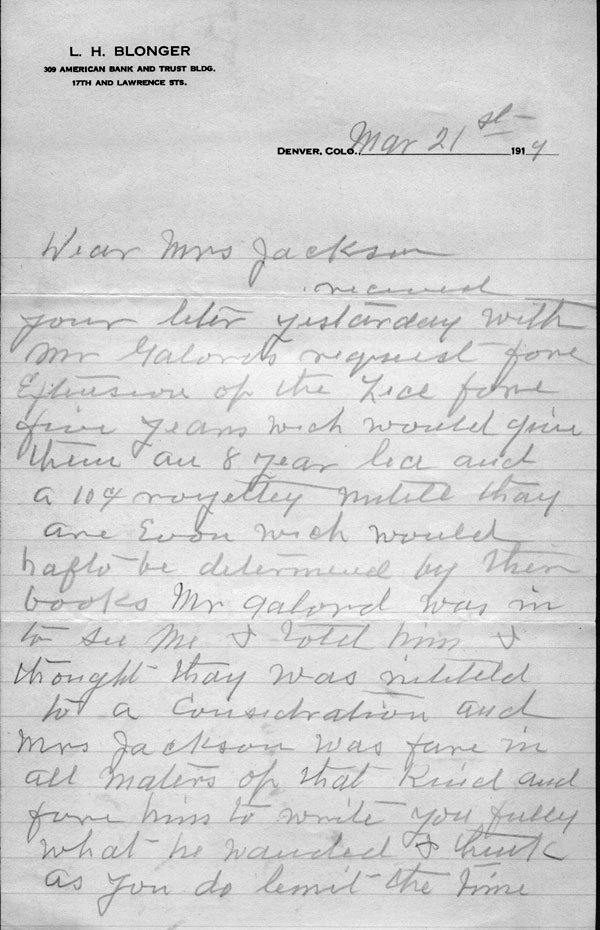 L. H. BLONGER
309 AMERICAN BANK AND TRUST BLDG.
17TH AND LAWRENCE STS.
DENVER, COLO., Mar 21st 1914
Dear Mrs Jackson
received
your leter yestarday with
Mr Galords request fore
Extension of the Lece fore
five years wich would give
them an 8 year lece and
a 10% royeltey untill thay
are Even wich would
hafto be determend by their
books Mr Galord was in
to see me I told him I
thought thay was intiteld
to a Considration and
Mrs Jackson was fare in
all maters of that Kind and
fore him to write you fully
what he wanded I think
as you do lemit the time